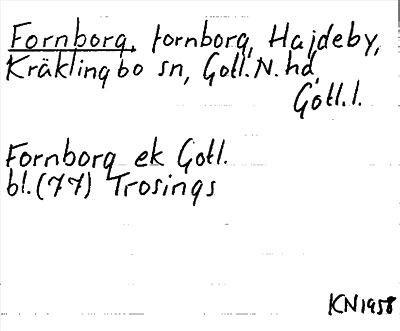 Fornborg, fornborg, Hajdeby,
Kräklingbo sn, Gotl. N. hd,
Gotl. l.
Fornborg ek Gotl.
bl. (77) Trosings
KN 1958